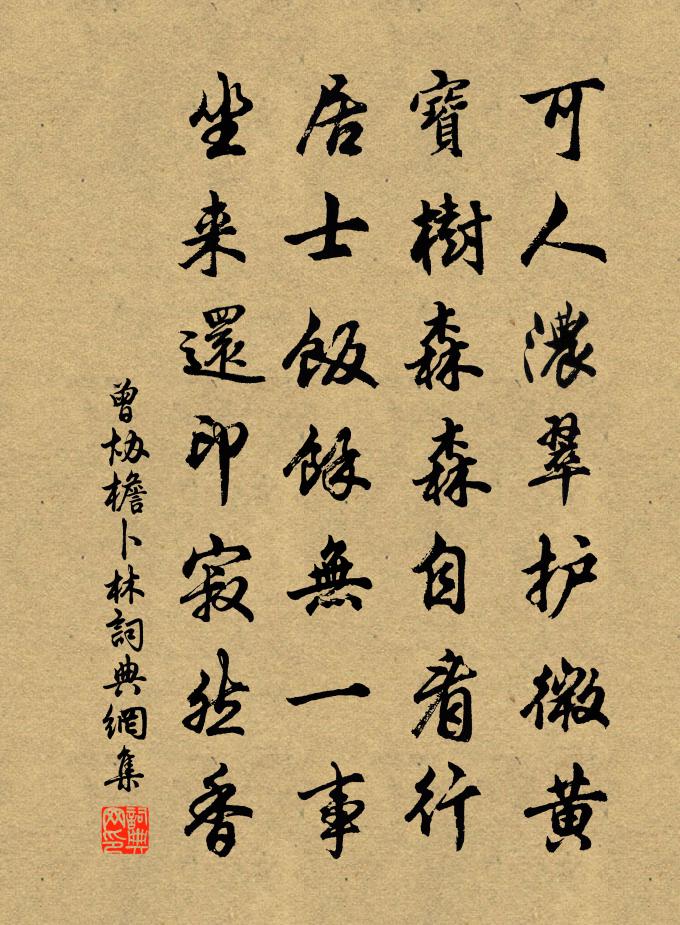 可人濃翠护微黄
寶樹森森自看行
居士飯餘無一事
坐来還印寂然香
曾协檐卜林詞典網集
詞典网印